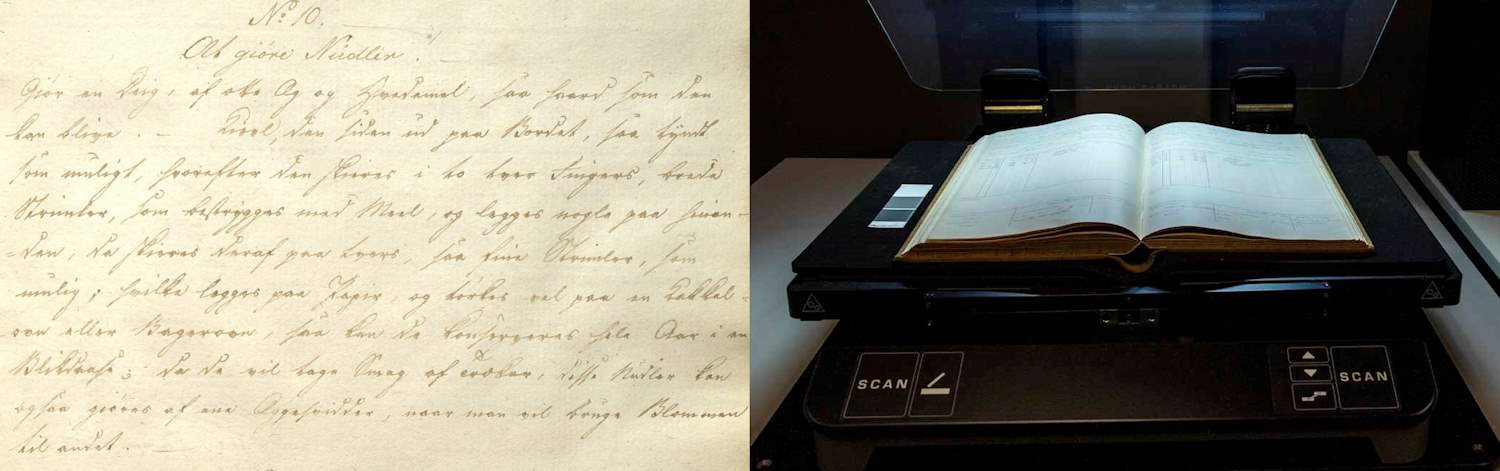 No 10.
At giöre Nudler.
Giör en Deig, af otte Æg og Hvedemel, saa haard som den
kan blive. — Kievl, den siden ud paa Bordet, saa tyndt
som muligt, hvorefter den skieres i to tver Fingers, brede
Strimler, som bestrygges med Meel, og legges nogle paa hinan-
=den, da skieres deraf paa tvers, saa fine Strimler, som
mulig; hvilke legges paa Papir, og törkes vel paa en Kakkel=
ovn eller Bagerovn, saa kan de konserveres hele Aar i en
Blikdaase; da de vil tage Smag af disse Nudler kan
ogsaa giöres af ene Eggehvidder, naar man vil bruge Blommen
til andet. —
SCAN
SCAN